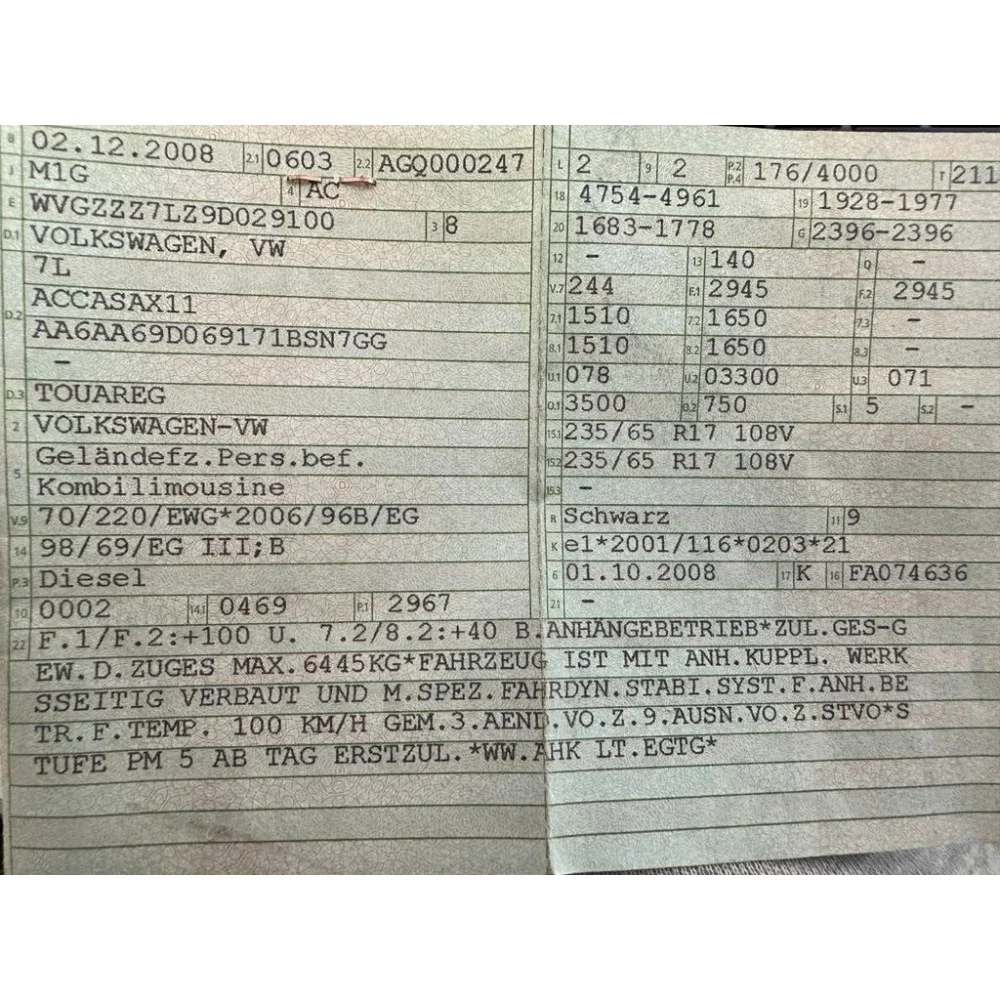 B 02.12.2008 2.1 0603 2.2 AGQ000247
J M1G 4 AC
E WVGZZZ7LZ9D029100 3 8
D.1 VOLKSWAGEN, VW
7L
D.2 ACCASAX11
AA6AA69D069171BSN7GG
–
D.3 TOUAREG
2 VOLKSWAGEN-VW
5 Geländefz.Pers.bef.
Kombilimousine
V.9 70/220/EWG*2006/96B/EG
14 98/69/EG III;B
P.3 Diesel
10 0002 14.1 0469 P.1 2967
L 2 9 2 P.2 P.4 176/4000 T 211
18 4754-4961 19 1928-1977
20 1683-1778 G 2396-2396
12 – 13 140 Q –
V.7 244 F.1 2945 F.2 2945
7.1 1510 7.2 1650 7.3 –
8.1 1510 8.2 1650 8.3 –
U.1 078 U.2 03300 U.3 071
O.1 3500 O.2 750 S.1 5 S.2 –
15.1 235/65 R17 108V
15.2 235/65 R17 108V
15.3 –
R Schwarz 11 9
K e1*2001/116*0203*21
6 01.10.2008 17 K 16 FA074636
21 –
22 F.1/F.2:+100 U. 7.2/8.2:+40 B.ANHÄNGEBETRIEB*ZUL.GES-G
EW.D.ZUGES MAX.6445KG*FAHRZEUG IST MIT ANH.KUPPL. WERK
SSEITIG VERBAUT UND M.SPEZ.FAHRDYN.STABI.SYST.F.ANH.BE
TR.F.TEMP. 100 KM/H GEM.3.AEND.VO.Z.9.AUSN.VO.Z.STVO*S
TUFE PM 5 AB TAG ERSTZUL.*WW.AHK LT.EGTG*